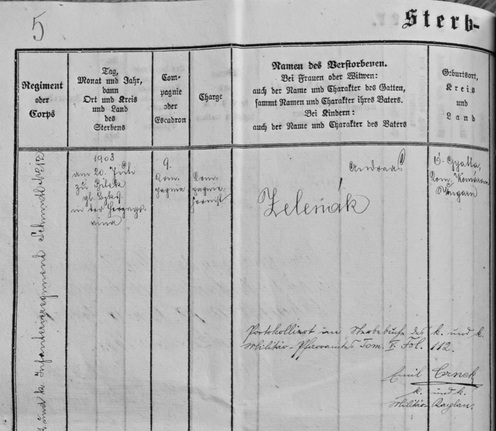 5
Sterb-
Regiment
oder
Corps
Tag,
Monat und Jahr,
dann
Ort und Kreis
und Land
des
Sterbens
Com-
pagnie
oder
Escadron
Charge
Namen des Verstorbenen.
Bei Frauen oder Witwen:
auch der Name und Charakter des Gatten,
sammt Namen und Charakter ihres Vaters.
Bei Kindern:
auch der Name und Charakter des Vaters
Geburtsort,
Kreis
und
Land
k. und k. Infanterieregiment
1903
am 20. Juli
zu Bilek
in der Herzego-
vina
9.
Com-
pagnie
Com-
pagnie
Andreas
Zeleňák
Ó-Gyalla,
Com. Komárom
Ungarn
Protokolliert im Sterbebuche des k. und k.
Militär-Pfarramtes Tom. II Fol. 112.
Emil
k. und k.
Militär-Kaplan